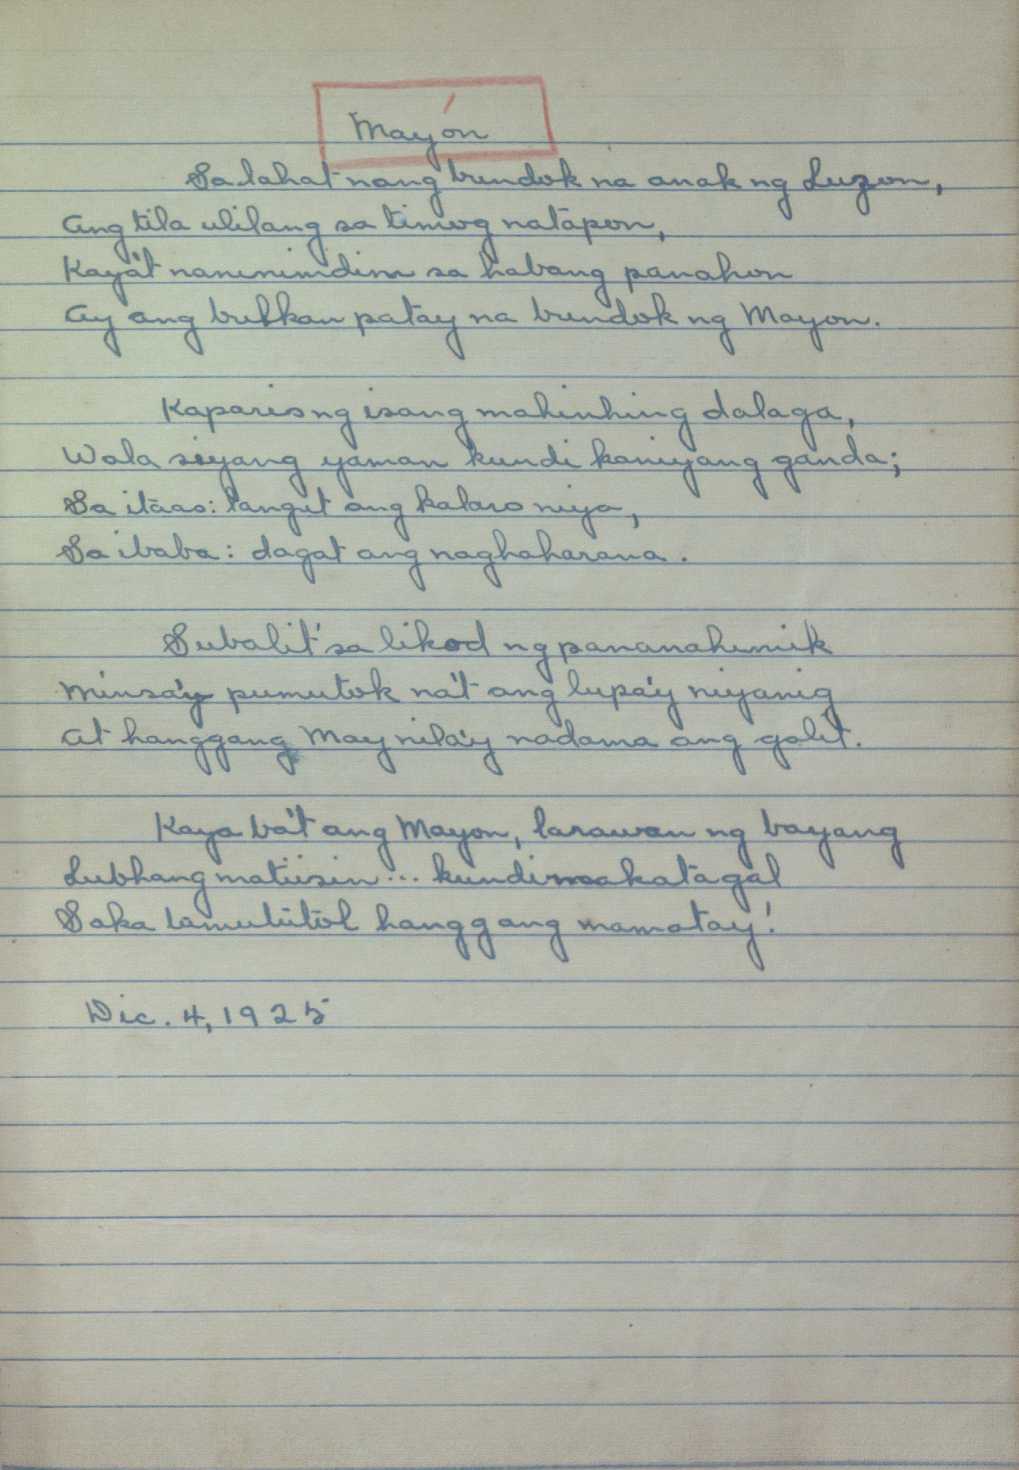 Mayón
Sa lahat nang bundok na anak ng Luzon,
Ang tila ulilang sa timog natapon,
Kaya't naninimdim sa habang panahon
Ay ang bulkan patay na bundok ng Mayon.
Kaparis ng isang mahinhing dalaga,
Wala siyang yaman kundi kaniyang ganda;
Sa itaas: langit ang kalaro niya,
Sa ibaba: dagat ang naghaharana.
Subalit sa likod ng pananahimik
Minsa'y pumutok na't ang lupa'y niyanig
At hanggang Maynila'y nadama ang galit.
Kaya ba't ang Mayon, larawan ng bayang
Lubhang matiisin... kundi makatagal
Saka tumututol hanggang mamatay!
Dic. 4, 1925